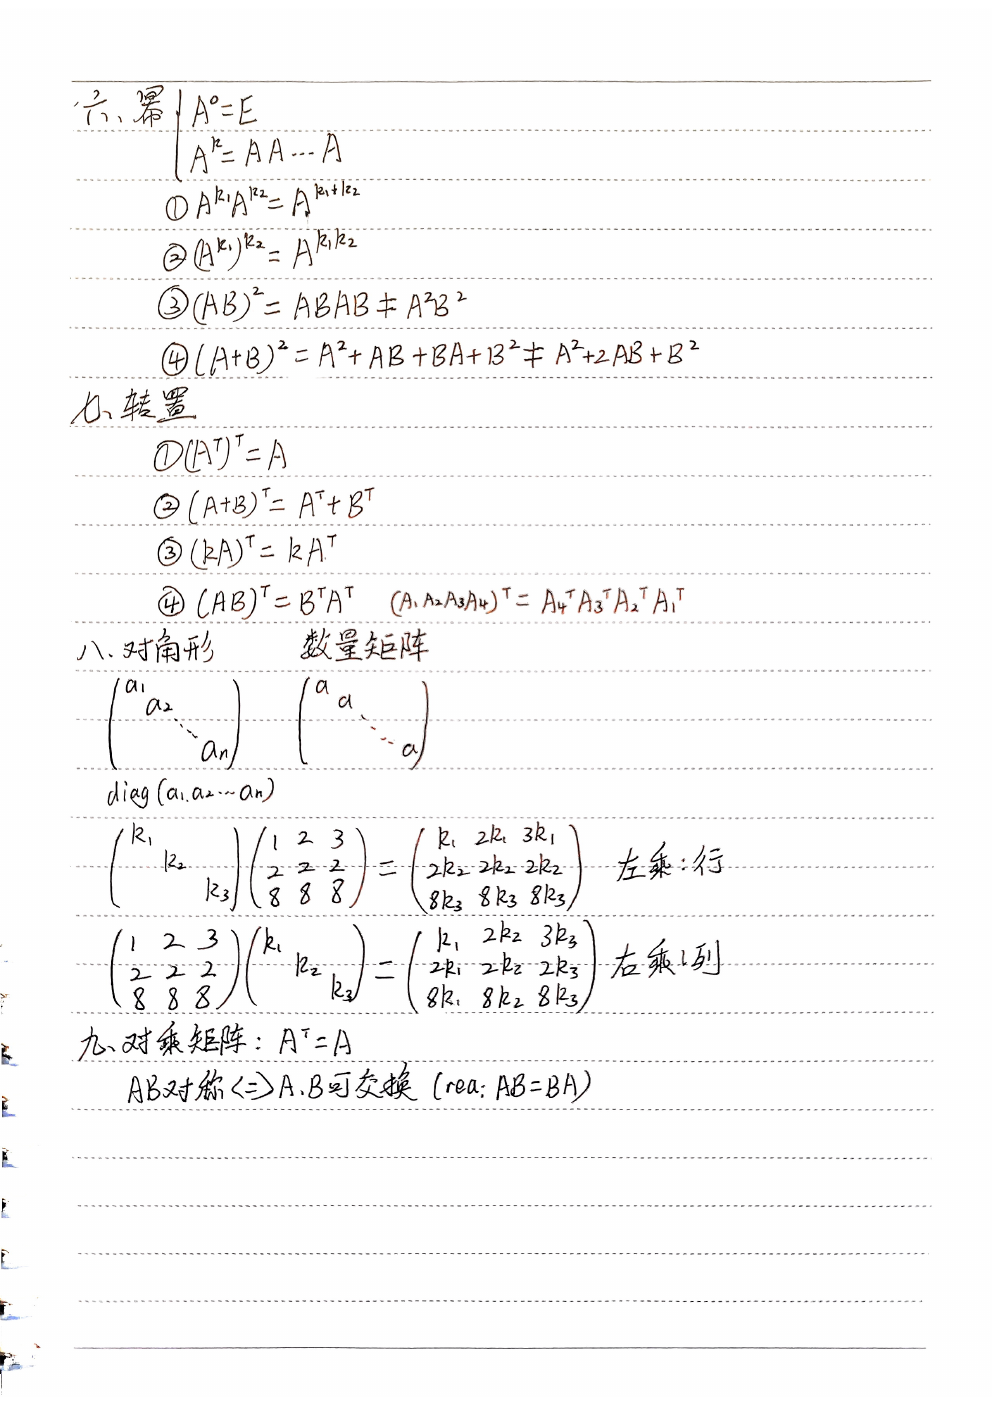 六、幂 { A⁰=E
Aᵏ=AA…A
①Aᵏ¹Aᵏ²=Aᵏ¹⁺ᵏ²
②(Aᵏ¹)ᵏ²=Aᵏ¹ᵏ²
③(AB)²=ABAB≠A²B²
④(A+B)²=A²+AB+BA+B²≠A²+2AB+B²
七、转置
①(Aᵀ)ᵀ=A
②(A+B)ᵀ=Aᵀ+Bᵀ
③(kA)ᵀ=kAᵀ
④(AB)ᵀ=BᵀAᵀ (A₁A₂A₃A₄)ᵀ=A₄ᵀA₃ᵀA₂ᵀA₁ᵀ
八、对角形 数量矩阵
(a₁ a₂ ⋱ aₙ) (a a ⋱ a)
diag(a₁.a₂…aₙ)
(k₁ k₂ k₃)(1 2 3 / 2 2 2 / 8 8 8)=(k₁ 2k₁ 3k₁ / 2k₂ 2k₂ 2k₂ / 8k₃ 8k₃ 8k₃) 左乘:行
(1 2 3 / 2 2 2 / 8 8 8)(k₁ k₂ k₃)=(k₁ 2k₂ 3k₃ / 2k₁ 2k₂ 2k₃ / 8k₁ 8k₂ 8k₃) 右乘:列
九、对乘矩阵: Aᵀ=A
AB对称<=>A、B可交换 (rea: AB=BA)